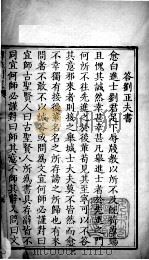 答劉正夫書
愈白進士劉君足下辱牋教以所不及既荷厚賜
且愧其誠然幸甚幸甚凡舉進士者於先進之門
何所不往先進之於後輩苟見其至寧可以不答
其意邪來者則接之舉城士大夫莫不皆然而愈
不幸獨有接後輩名名之所存謗之所歸也有來
問者不敢不以誠答或問為文宜何師必謹對曰
宜師古聖賢人曰古聖賢人所為書具存辭皆不
同宜何師必謹對曰師其意不師其辭又問曰